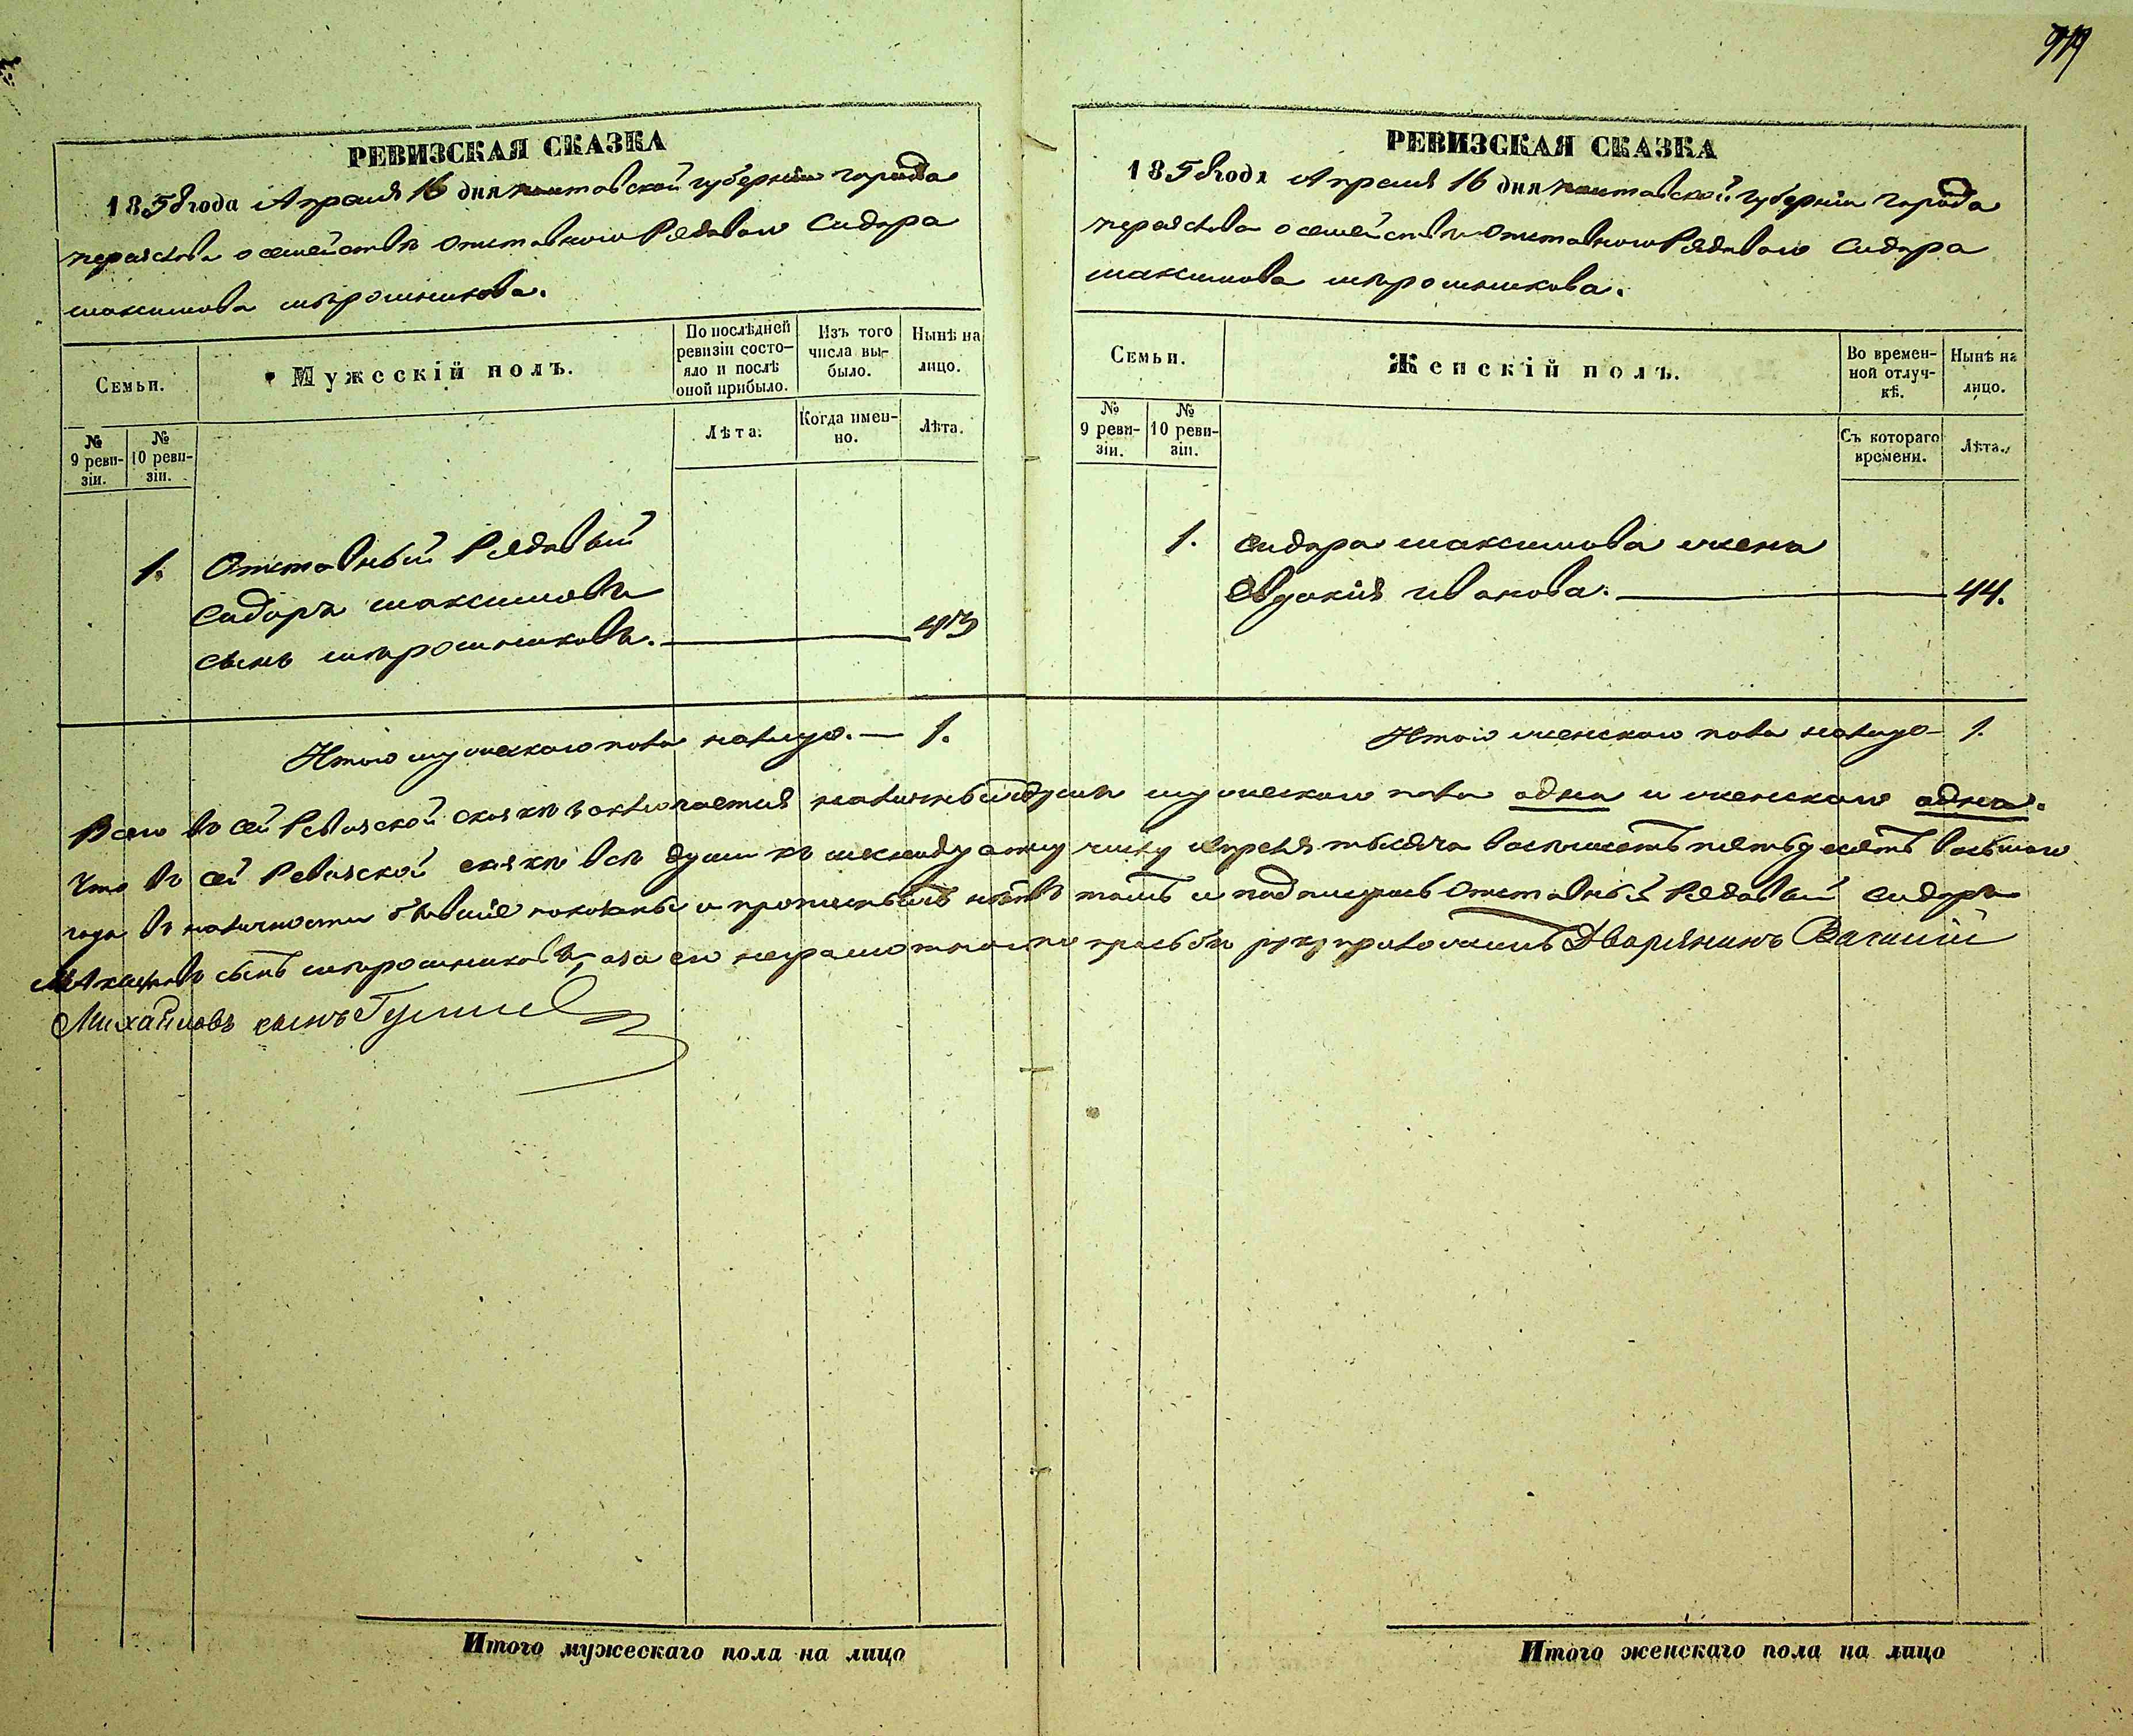 РЕВИЗСКАЯ СКАЗКА
1858 года Апреля 16 дня полтавской губерніи города
переяслова о семействѣ Отставного Рядового Сидора
максимова мѣрошникова.
Семьи.
Мужескій полъ.
По послѣдней ревизіи состояло и послѣ оной прибыло.
Изъ того числа выбыло.
Нынѣ на лицо.
№ 9 ревизіи.
№ 10 ревизіи.
Лѣта.
Когда именно.
Лѣта.
1. Отставный Рядовый
Сидоръ максимовъ
сынъ мѣрошниковъ. 43
Итого мужескаго пола налицо. — 1.
РЕВИЗСКАЯ СКАЗКА
1858 года Апреля 16 дня полтавской губерніи города
переяслова о семействѣ Отставного Рядового Сидора
максимова мѣрошникова.
Семьи.
Женскій полъ.
Во временной отлучкѣ.
Нынѣ на лицо.
№ 9 ревизіи.
№ 10 ревизіи.
Съ котораго времени.
Лѣта.
1. Сидора максимова жена
Евдокія иванова. 44.
Итого женского пола налицо — 1.
Всего въ сей Ревизской сказкѣ заключается наличныхъ душъ мужеского пола одна и женского одна.
Что въ сей Ревизской сказкѣ всѣ души къ числу апреля тысяча восемьсотъ пятьдесятъ восьмого
года въ наличности бывшіе показаны и нѣтъ въ томъ и подписуюсь Отставный Рядовый Сидоръ
Максимовъ сынъ мѣрошниковъ, а за его неграмотностю прозьбы руку приложилъ Дворянинъ Василій
Михайловъ сынъ
Итого мужескаго пола на лицо
Итого женскаго пола на лицо